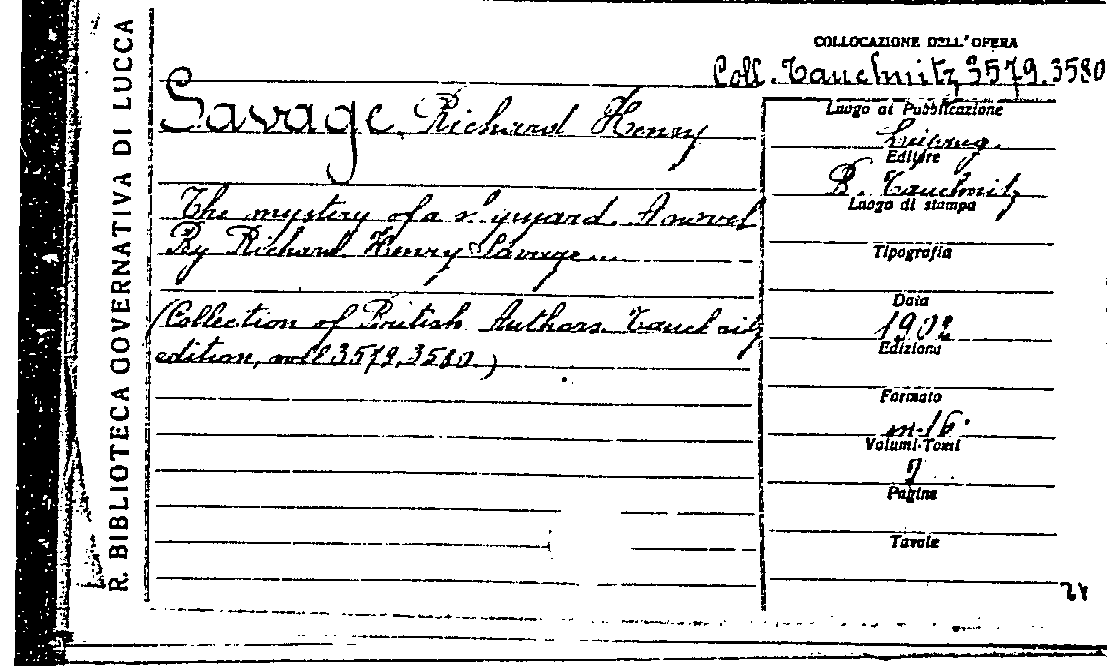 R. BIBLIOTECA GOVERNATIVA DI LUCCA
COLLOCAZIONE DELL'OPERA
Coll. Tauchnitz 3579.3580
Savage, Richard Henry
The mystery of a shipyard. A novel
By Richard Henry Savage...
(Collection of British Authors Tauchnitz
edition, voll 3579, 3580.)
Luogo di Pubblicazione
Leipzig.
Editore
B. Tauchnitz
Luogo di stampa
Tipografia
Data
1902
Edizione
Formato
in-16°
Volumi-Tomi
Pagine
Tavole